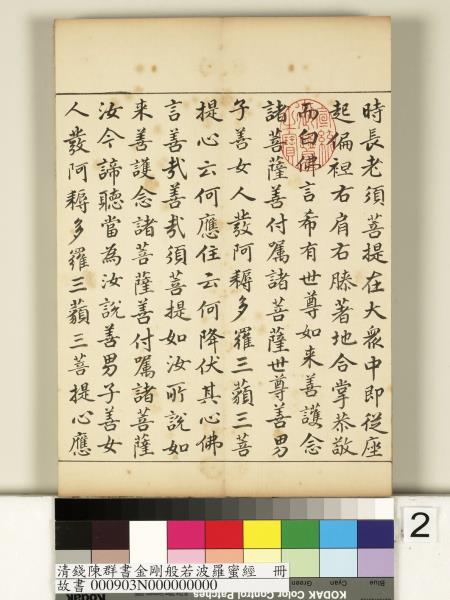 時長老須菩提在大眾中即從座
起偏袒右肩右膝著地合掌恭敬
而白佛言希有世尊如来善護念
諸菩薩善付囑諸菩薩世尊善男
子善女人發阿耨多羅三藐三菩
提心云何應住云何降伏其心佛
言善哉善哉須菩提如汝所說如
来善護念諸菩薩善付囑諸菩薩
汝今諦聽當為汝說善男子善女
人發阿耨多羅三藐三菩提心應
2
清錢陳群書金剛般若波羅蜜經 冊
故書 000903N000000000
KODAK Color Control Patches
Green
Cyan
Blue